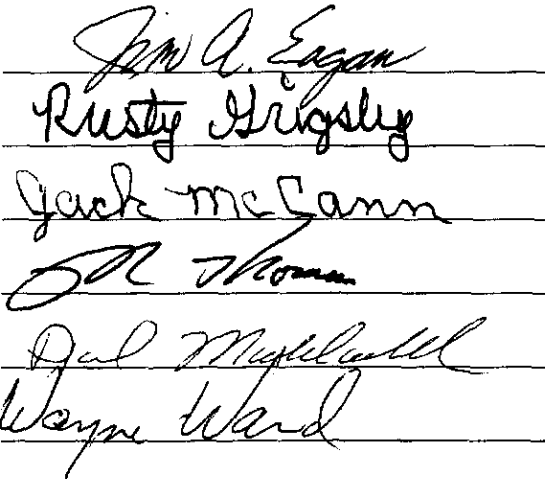 Jim A. Eagan
Rusty Grigsby
Jack McCann
Thomas
Wayne Ward